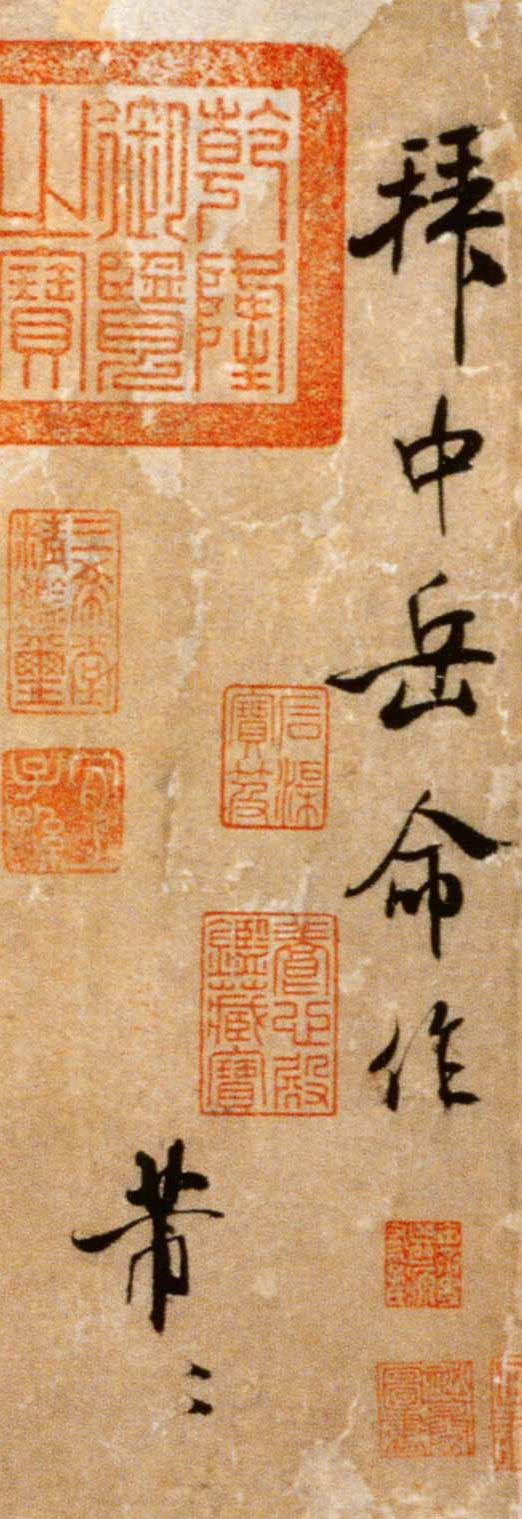 拜中岳命作
芾
乾隆
御覽
之寶
石渠
寶笈
養心殿
鑑藏寶
三希堂
精鑑璽
宜
子孫